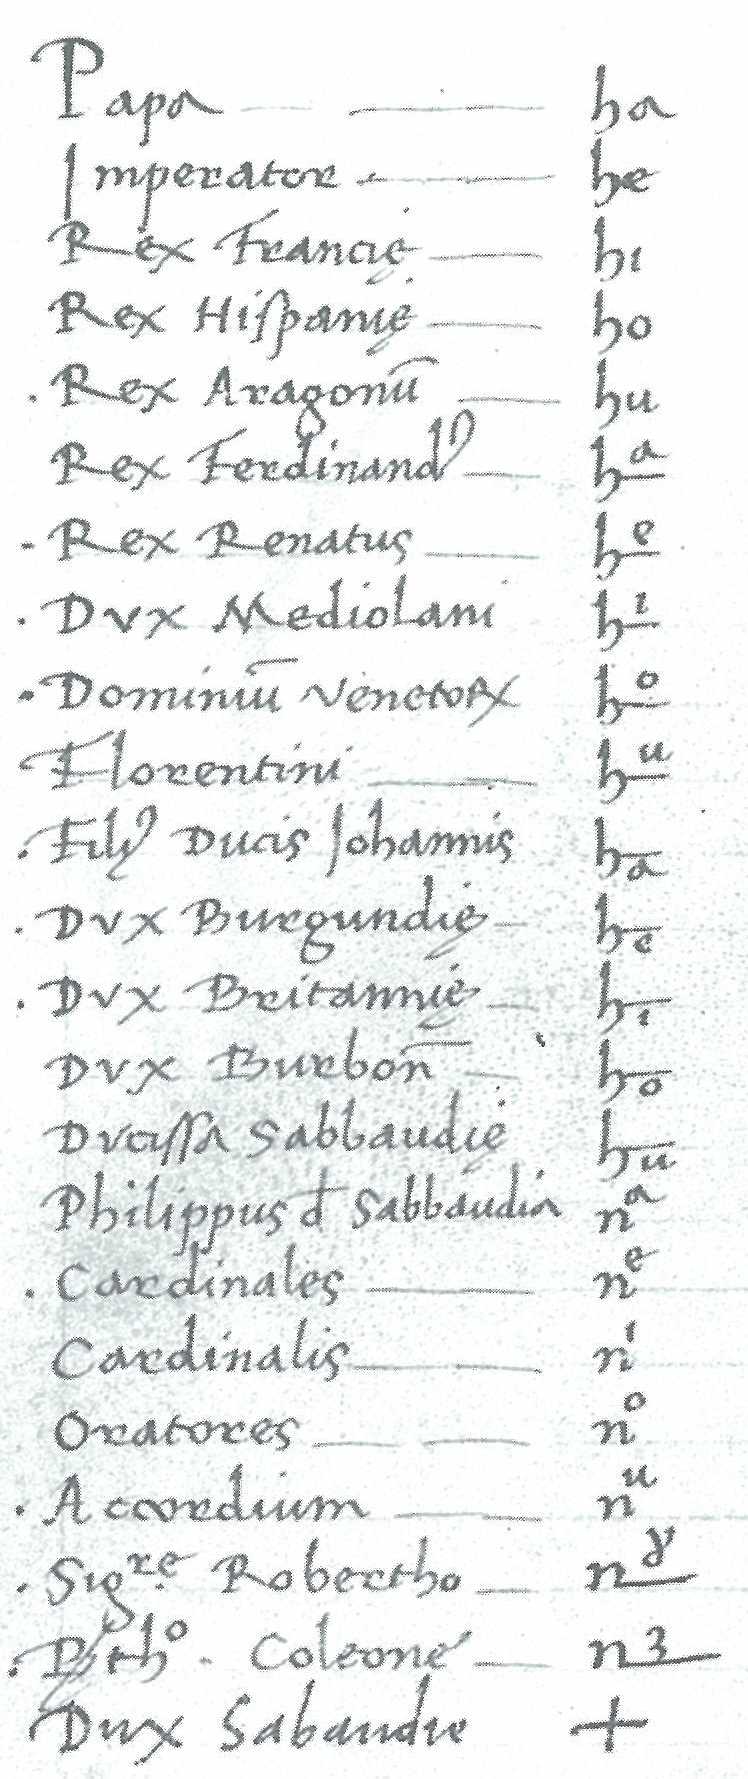 Papa — — ha
Imperator — he
Rex Francię — hi
Rex Hiſpanię — ho
. Rex Aragonū — hu
Rex Ferdinand9 — hᵃ
- Rex Renatus — hᵉ
. Dvx Mediolani hⁱ
. Dominiū Venetoꝝ hᵒ
Florentini — hᵘ
. Filij Ducis Johannis hₐ
. Dvx Burgundię — hₑ
. Dvx Britannię — hᵢ
Dvx Burbon̄ — hₒ
Dvciſſa Sabbaudię hᵤ
Philippus đ Sabbaudia nᵃ
. Cardinales — nᵉ
Cardinalis — nⁱ
Oratores — — nᵒ
. Accordium — nᵘ
. Sigʳᵉ. Robertho — n
. Bthᵒ. Coleone — n3
Dux Sabaudie +